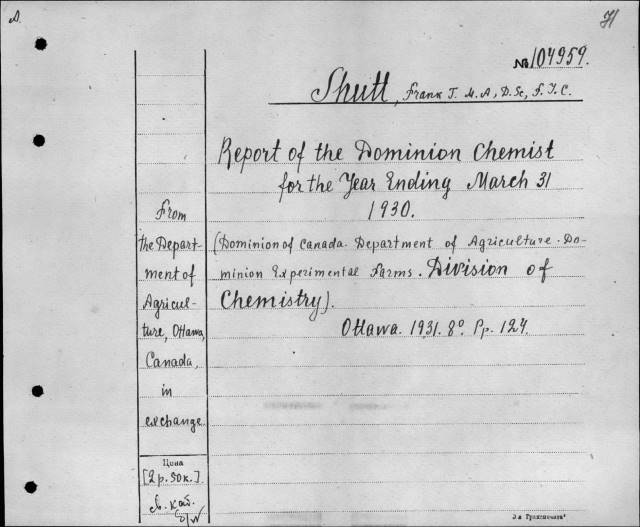 A.
71
№ 104959.
Shutt, Frank T. M.A., D.Sc, F.I.C.
Report of the Dominion Chemist
for the Year Ending March 31
1930.
(Dominion of Canada. Department of Agriculture. Do-
minion Experimental Farms. Division of
Chemistry).
Ottawa. 1931. 8° Pp. 124.
From
the Depart-
ment of
Agricul-
ture, Ottawa,
Canada,
in
exchange.
Цена
[2 р. 50 к.]
св. каб.